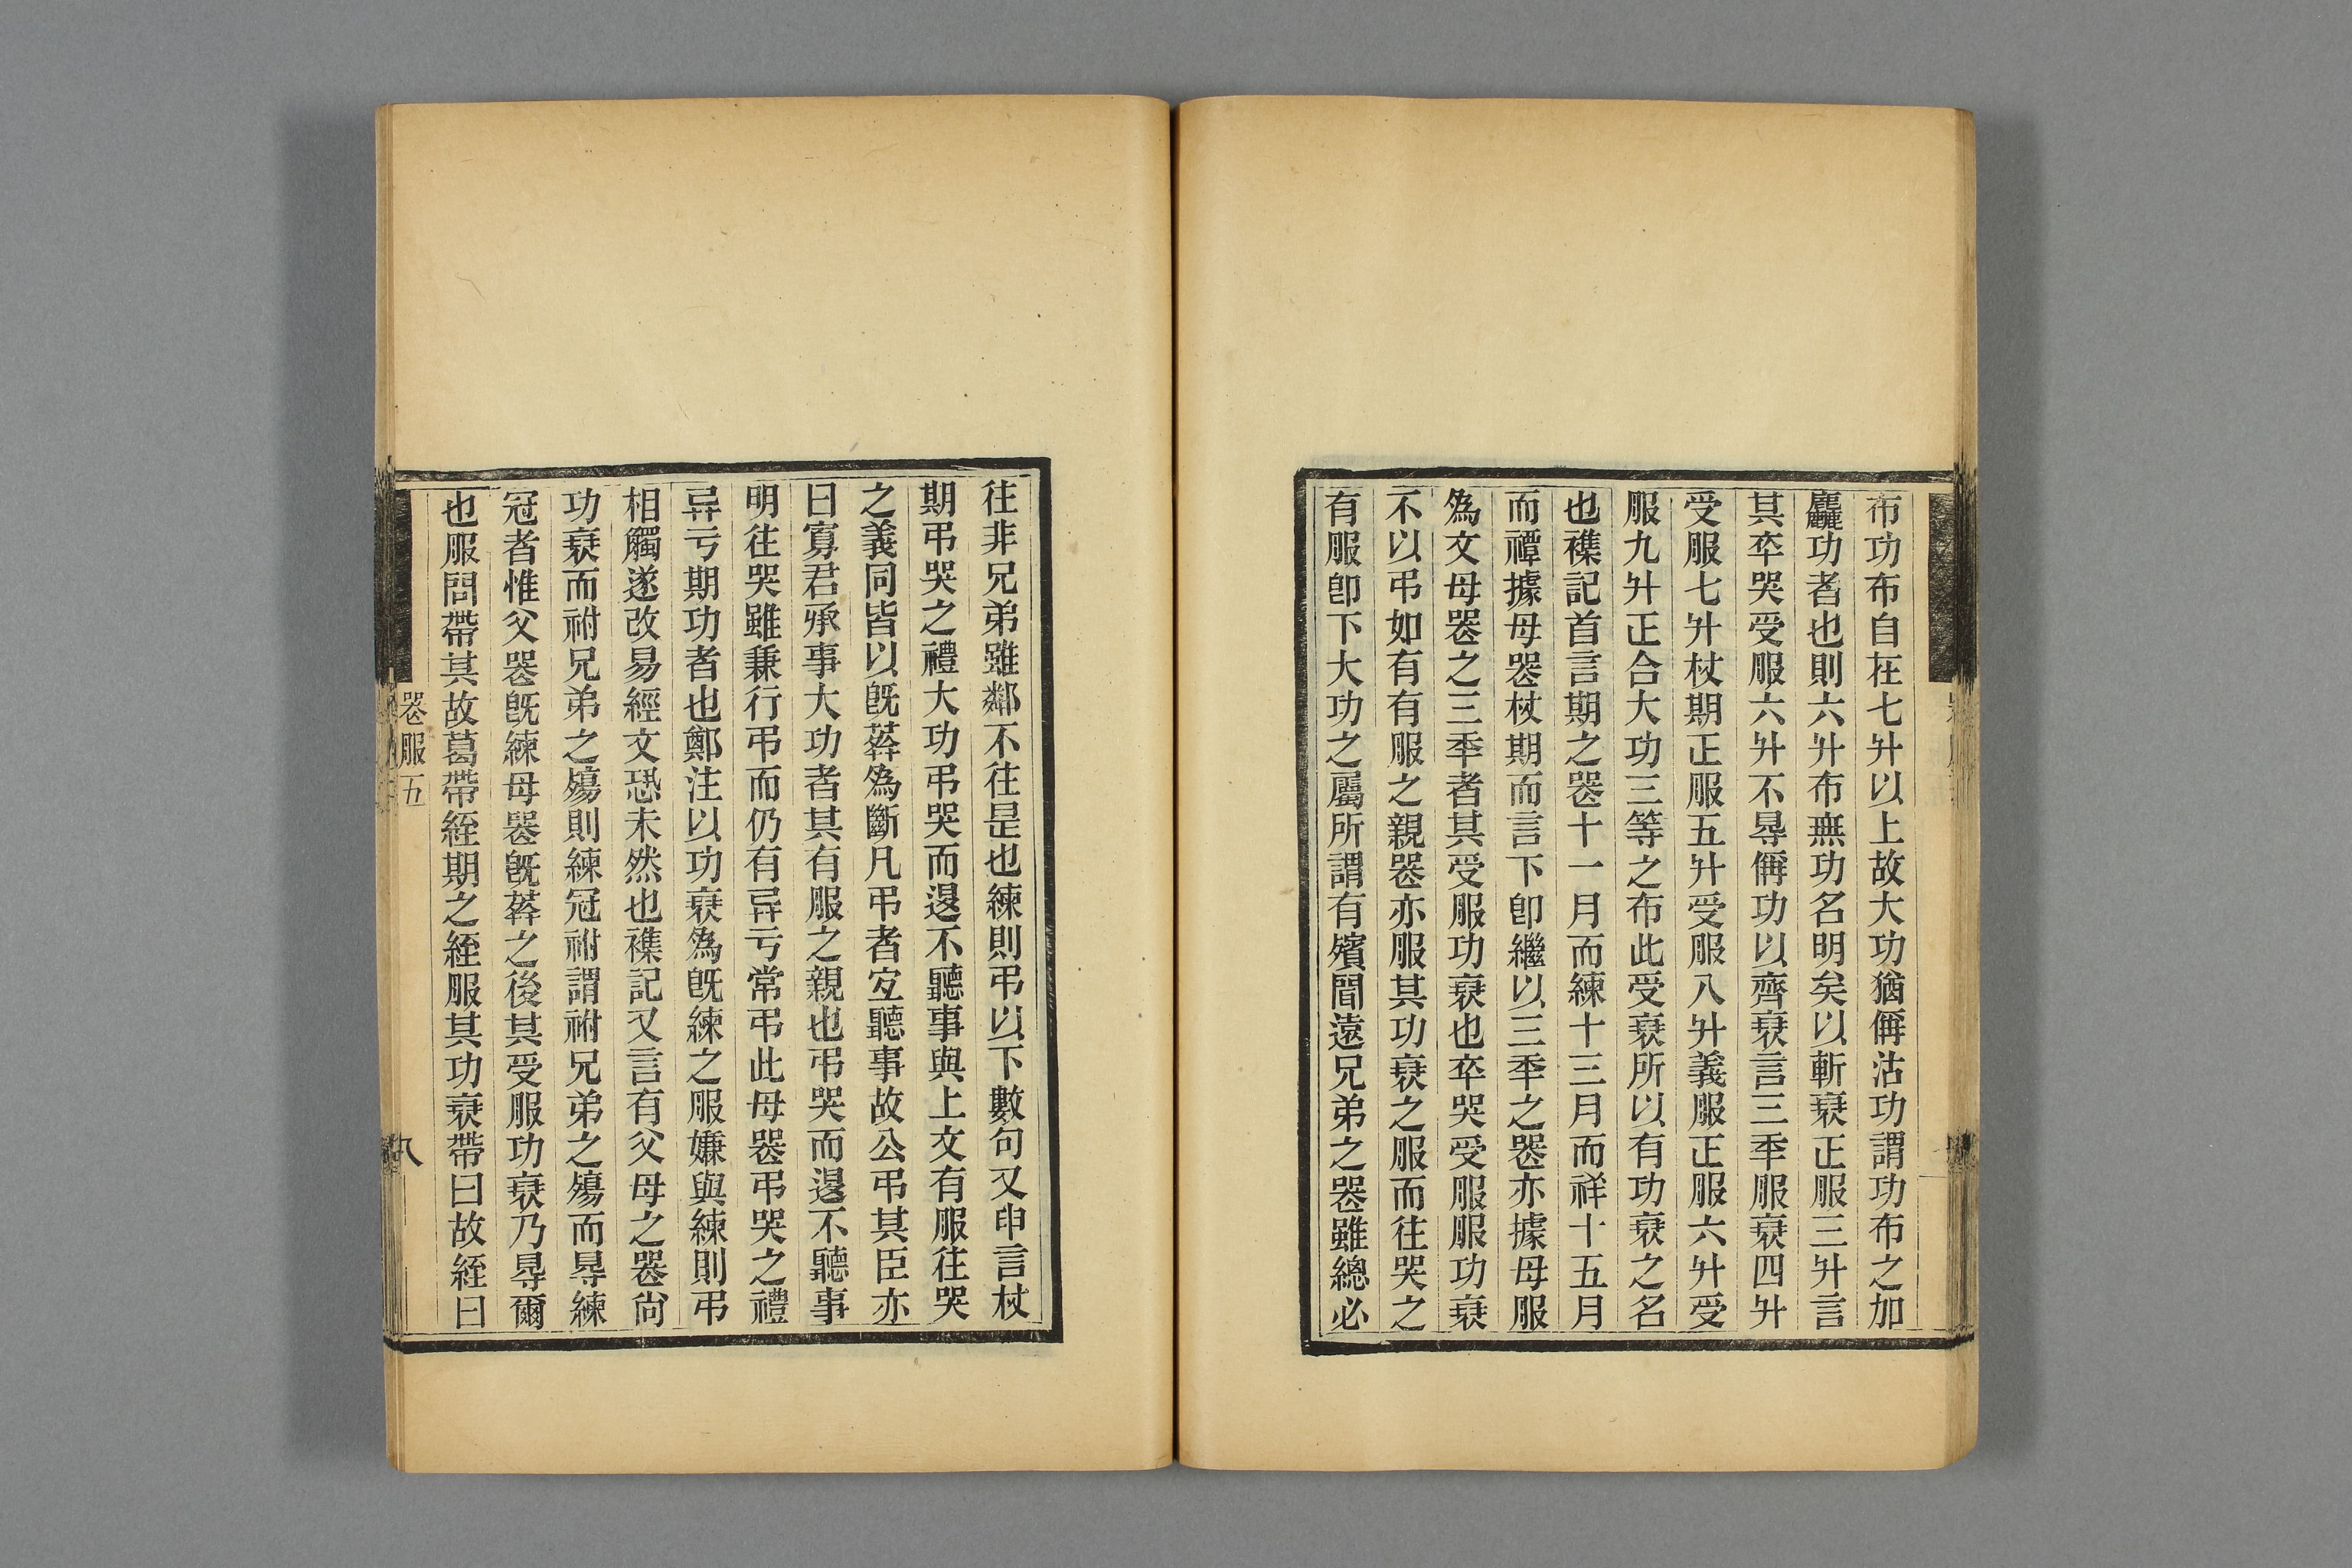 布功布自在七升以上故大功猶偁沽功謂功布之加
麤功者也則六升布無功名明矣以斬衰正服三升言
其卒哭受服六升不㝵偁功以齊衰言三秊服衰四升
受服七升杖期正服五升受服八升義服正服六升受
服九升正合大功三等之布此受衰所以有功衰之名
也襍記首言期之喪十一月而練十三月而祥十五月
而禫據母喪杖期而言下卽繼以三秊之喪亦據母服
爲父母喪之三秊者其受服功衰也卒哭受服服功衰
不以弔如有有服之親喪亦服其功衰之服而往哭之
有服卽下大功之屬所謂有殯聞遠兄弟之喪雖緦必
往非兄弟雖鄰不往是也練則弔以下數句又申言杖
期弔哭之禮大功弔哭而退不聽事與上文有服往哭
之義同皆以旣葬爲斷凡弔者宐聽事故公弔其臣亦
曰寡君承事大功者其有服之親也弔哭而退不聽事
明往哭雖兼行弔而仍有异亏常弔此母喪弔哭之禮
异亏期功者也鄭注以功衰爲旣練之服嫌與練則弔
相觸遂改易經文恐未然也襍記又言有父母之喪尙
功衰而祔兄弟之殤則練冠祔謂祔兄弟之殤而㝵練
冠者惟父喪旣練母喪旣葬之後其受服功衰乃㝵爾
也服問帶其故葛帶絰期之絰服其功衰帶曰故絰曰
喪服五
八